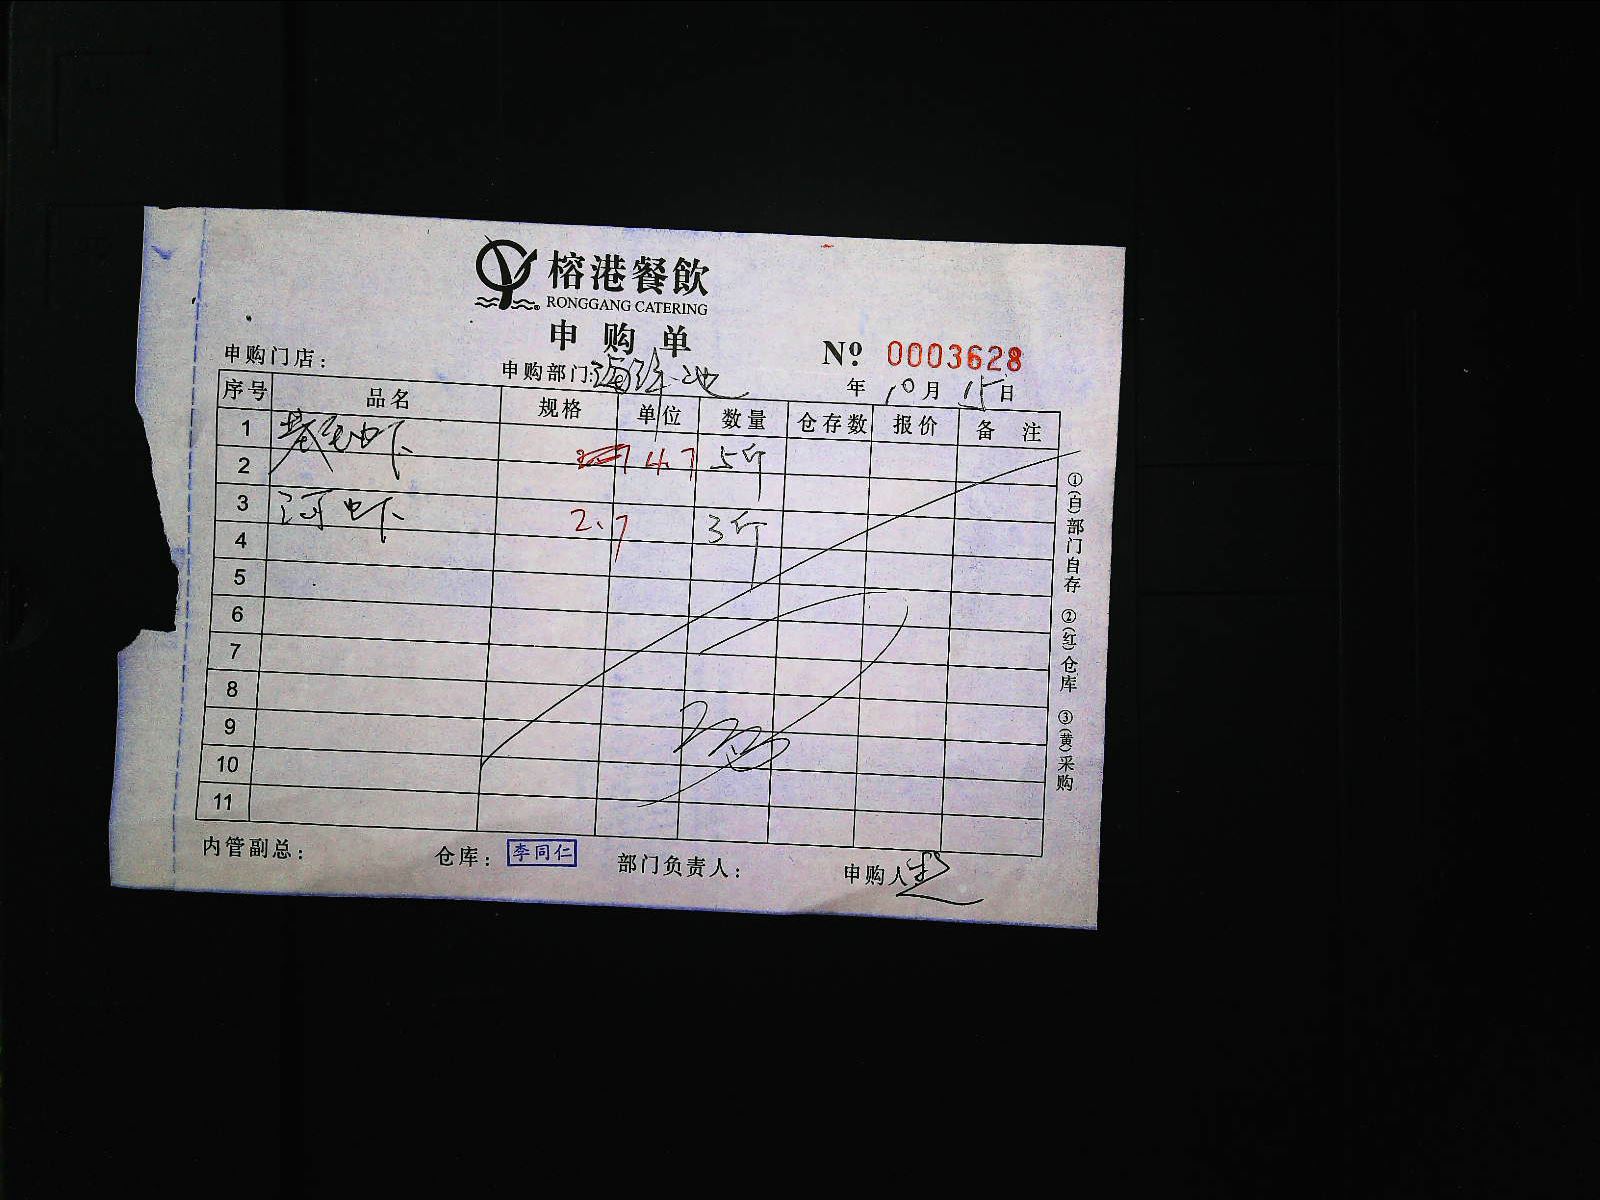 榕港餐飲
RONGGANG CATERING
申购单
№ 0003628
申购门店:
申购部门:海鲜池
年 10月 15日
序号 品名 规格 单位 数量 仓存数 报价 备注
1 基围虾
2 4.7 5斤
3 河虾 2.7 3斤
4
5
6
7
8
9
10
11
①(白)部门自存 ②(红)仓库 ③(黄)采购
内管副总: 仓库: 李同仁 部门负责人: 申购人